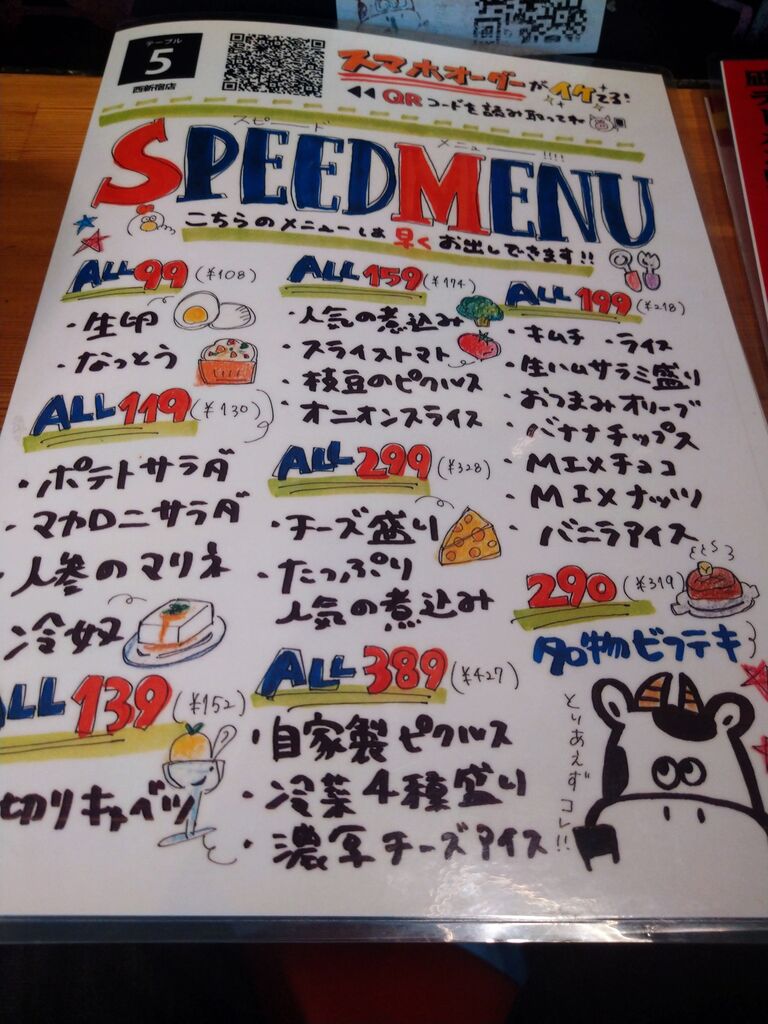 テーブル
5
西新宿店
スマホオーダーがイケてる!
◀◀ QRコードを読み取ってね
スピード メニュー!!!!
SPEEDMENU
こちらのメニューは早くお出しできます!!
ALL 99 (¥108)
・生卵
・なっとう
ALL 119 (¥130)
・ポテトサラダ
・マカロニサラダ
・人参のマリネ
冷奴
ALL 139 (¥152)
切りキャベツ
ALL 159 (¥174)
・人気の煮込み
・スライストマト
・枝豆のピクルス
・オニオンスライス
ALL 299 (¥328)
・チーズ盛り
・たっぷり
人気の煮込み
ALL 389 (¥427)
・自家製ピクルス
・冷菜4種盛り
・濃厚チーズアイス
ALL 199 (¥218)
・キムチ ・ライス
・生ハムサラミ盛り
・おつまみオリーブ
・バナナチップス
・MIXチョコ
・MIXナッツ
・バニラアイス
290 (¥319)
名物ビフテキ
とりあえずコレ!!